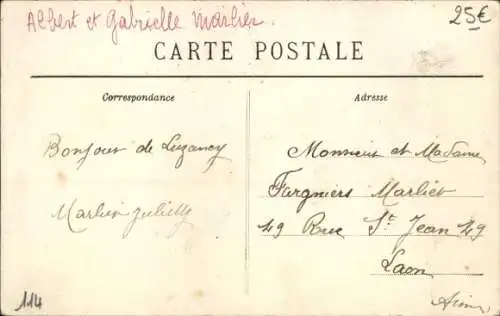 Albert et Gabrielle Marlier.
25€
CARTE POSTALE
Correspondance
Adresse
Bonjour de Luzancy
Marlier Juliette
Monsieur et Madame
Fargniers Marlier
49 Rue St Jean 49
Laon
Aisne
114